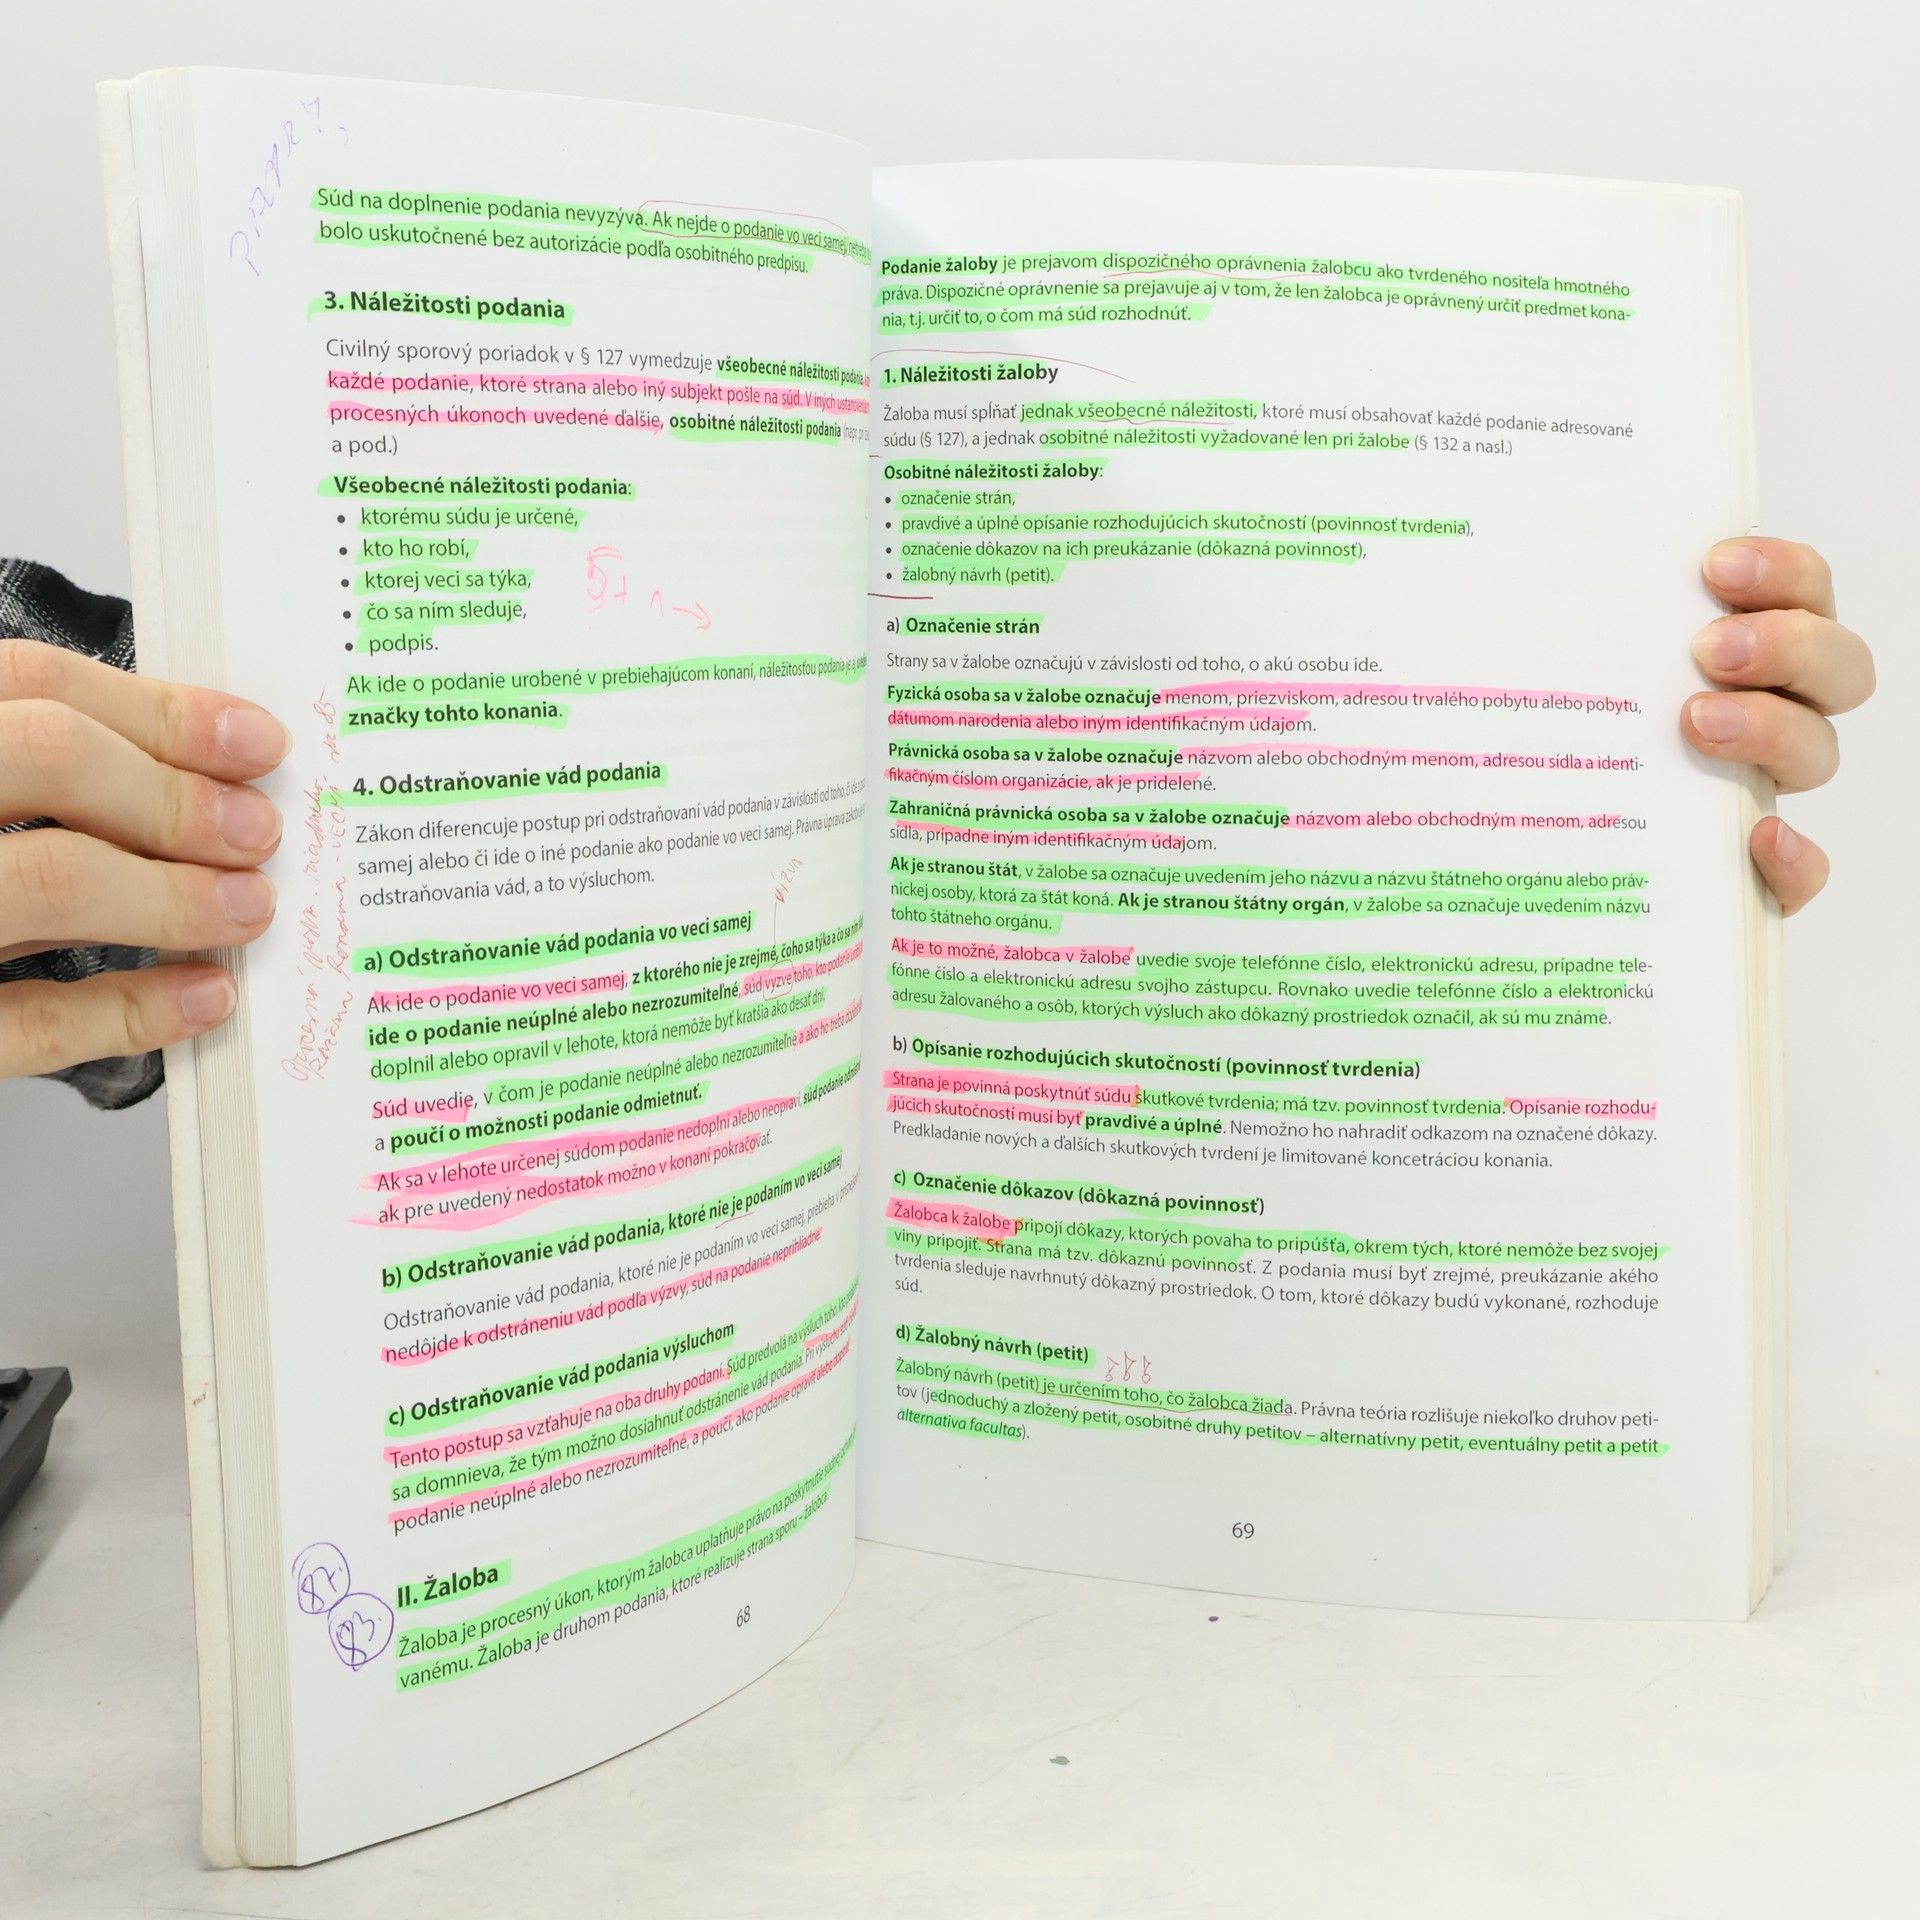 Súd na doplnenie podania nevyzýva. Ak nejde o podanie vo veci samej,
bolo uskutočnené bez autorizácie podľa osobitného predpisu.
3. Náležitosti podania
Civilný sporový poriadok v § 127 vymedzuje všeobecné náležitosti podania,
každé podanie, ktoré strana alebo iný subjekt pošle na súd. V iných
procesných úkonoch uvedené ďalšie, osobitné náležitosti podania
a pod.)
Všeobecné náležitosti podania:
• ktorému súdu je určené,
• kto ho robí,
• ktorej veci sa týka,
• čo sa ním sleduje,
• podpis.
Ak ide o podanie urobené v prebiehajúcom konaní, náležitosťou podania je aj
značky tohto konania.
4. Odstraňovanie vád podania
Zákon diferencuje postup pri odstraňovaní vád podania v závislosti od toho, či ide o
samej alebo či ide o iné podanie ako podanie vo veci samej. Právna úprava
odstraňovania vád, a to výsluchom.
a) Odstraňovanie vád podania vo veci samej
Ak ide o podanie vo veci samej, z ktorého nie je zrejmé, čoho sa týka a čo sa ním
ide o podanie neúplné alebo nezrozumiteľné, súd vyzve toho, kto podanie
doplnil alebo opravil v lehote, ktorá nemôže byť kratšia ako desať dní.
Súd uvedie, v čom je podanie neúplné alebo nezrozumiteľné a ako ho treba
a poučí o možnosti podanie odmietnuť.
Ak sa v lehote určenej súdom podanie nedoplní alebo neopraví, súd podanie
ak pre uvedený nedostatok možno v konaní pokračovať.
b) Odstraňovanie vád podania, ktoré nie je podaním vo veci samej
Odstraňovanie vád podania, ktoré nie je podaním vo veci samej, prebieha v
nedôjde k odstráneniu vád podľa výzvy, súd na podanie neprihliadne.
c) Odstraňovanie vád podania výsluchom
Tento postup sa vzťahuje na oba druhy podaní. Súd predvolá na výsluch toho, kto
sa domnieva, že tým možno dosiahnuť odstránenie vád podania. Pri výsluchu súd
podanie neúplné alebo nezrozumiteľné, a poučí, ako podanie opraviť alebo doplniť.
II. Žaloba
Žaloba je procesný úkon, ktorým žalobca uplatňuje právo na poskytnutie súdnej
vanému. Žaloba je druhom podania, ktoré realizuje strana sporu – žalobca.
87.
83.
68
Podanie žaloby je prejavom dispozičného oprávnenia žalobcu ako tvrdeného nositeľa hmotného
práva. Dispozičné oprávnenie sa prejavuje aj v tom, že len žalobca je oprávnený určiť predmet kona-
nia, t.j. určiť to, o čom má súd rozhodnúť.
1. Náležitosti žaloby
Žaloba musí spĺňať jednak všeobecné náležitosti, ktoré musí obsahovať každé podanie adresované
súdu (§ 127), a jednak osobitné náležitosti vyžadované len pri žalobe (§ 132 a nasl.)
Osobitné náležitosti žaloby:
• označenie strán,
• pravdivé a úplné opísanie rozhodujúcich skutočností (povinnosť tvrdenia),
• označenie dôkazov na ich preukázanie (dôkazná povinnosť),
• žalobný návrh (petit).
a) Označenie strán
Strany sa v žalobe označujú v závislosti od toho, o akú osobu ide.
Fyzická osoba sa v žalobe označuje menom, priezviskom, adresou trvalého pobytu alebo pobytu,
dátumom narodenia alebo iným identifikačným údajom.
Právnická osoba sa v žalobe označuje názvom alebo obchodným menom, adresou sídla a identi-
fikačným číslom organizácie, ak je pridelené.
Zahraničná právnická osoba sa v žalobe označuje názvom alebo obchodným menom, adresou
sídla, prípadne iným identifikačným údajom.
Ak je stranou štát, v žalobe sa označuje uvedením jeho názvu a názvu štátneho orgánu alebo práv-
nickej osoby, ktorá za štát koná. Ak je stranou štátny orgán, v žalobe sa označuje uvedením názvu
tohto štátneho orgánu.
Ak je to možné, žalobca v žalobe uvedie svoje telefónne číslo, elektronickú adresu, prípadne tele-
fónne číslo a elektronickú adresu svojho zástupcu. Rovnako uvedie telefónne číslo a elektronickú
adresu žalovaného a osôb, ktorých výsluch ako dôkazný prostriedok označil, ak sú mu známe.
b) Opísanie rozhodujúcich skutočností (povinnosť tvrdenia)
Strana je povinná poskytnúť súdu skutkové tvrdenia; má tzv. povinnosť tvrdenia. Opísanie rozhodu-
júcich skutočností musí byť pravdivé a úplné. Nemožno ho nahradiť odkazom na označené dôkazy.
Predkladanie nových a ďalších skutkových tvrdení je limitované koncetráciou konania.
c) Označenie dôkazov (dôkazná povinnosť)
Žalobca k žalobe pripojí dôkazy, ktorých povaha to pripúšťa, okrem tých, ktoré nemôže bez svojej
viny pripojiť. Strana má tzv. dôkaznú povinnosť. Z podania musí byť zrejmé, preukázanie akého
tvrdenia sleduje navrhnutý dôkazný prostriedok. O tom, ktoré dôkazy budú vykonané, rozhoduje
súd.
d) Žalobný návrh (petit) !!!
Žalobný návrh (petit) je určením toho, čo žalobca žiada. Právna teória rozlišuje niekoľko druhov peti-
tov (jednoduchý a zložený petit, osobitné druhy petitov – alternatívny petit, eventuálny petit a petit
alternativa facultas).
69